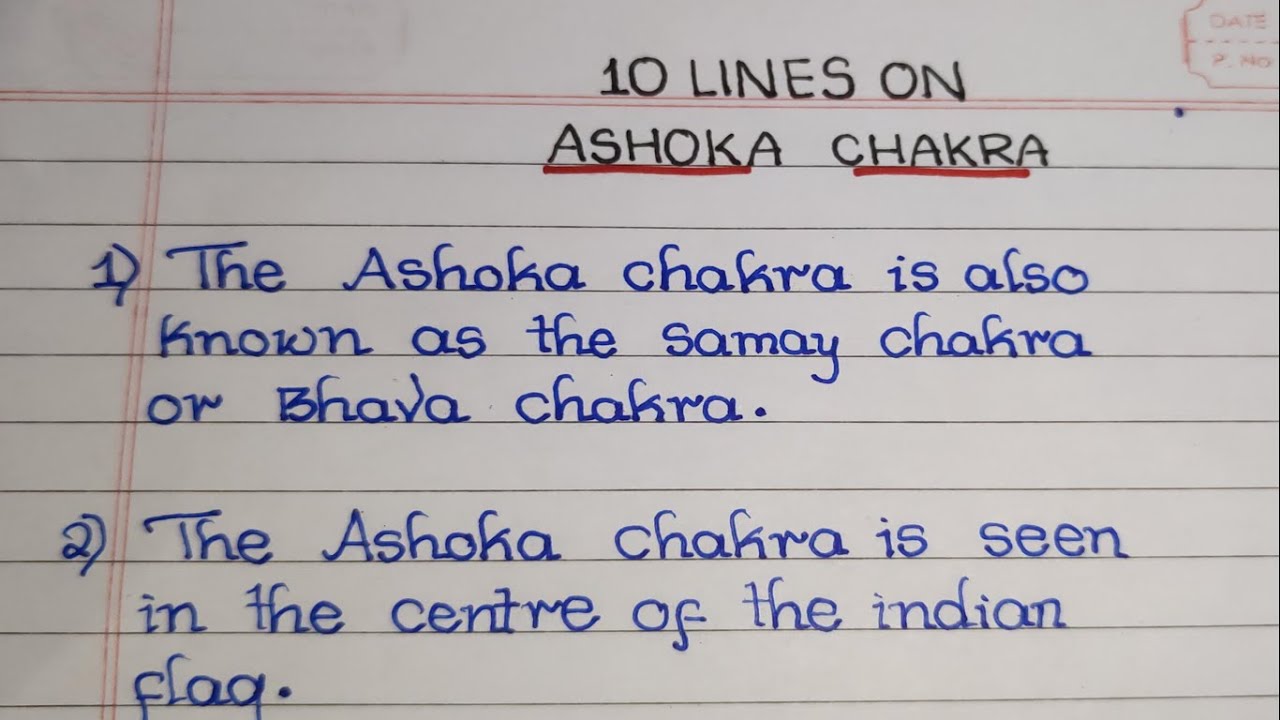 DATE
P. NO
10 LINES ON
ASHOKA CHAKRA
1) The Ashoka chakra is also
known as the samay chakra
or Bhava chakra.
2) The Ashoka chakra is seen
in the centre of the indian
flag.